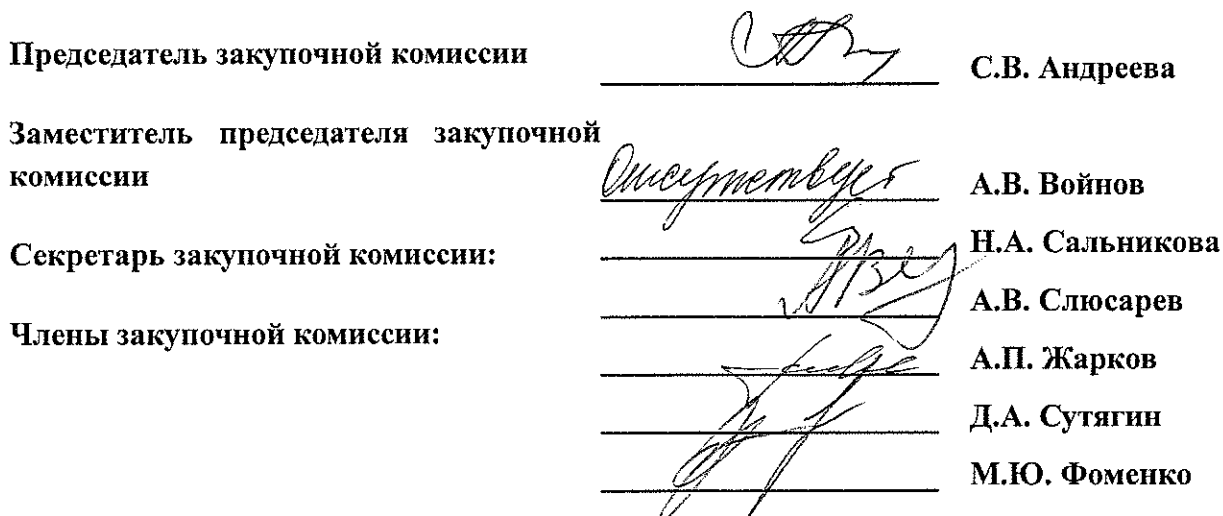 Председатель закупочной комиссии С.В. Андреева
Заместитель председателя закупочной
комиссии Отсутствует А.В. Войнов
Секретарь закупочной комиссии: Н.А. Сальникова
А.В. Слюсарев
Члены закупочной комиссии:
А.П. Жарков
Д.А. Сутягин
М.Ю. Фоменко